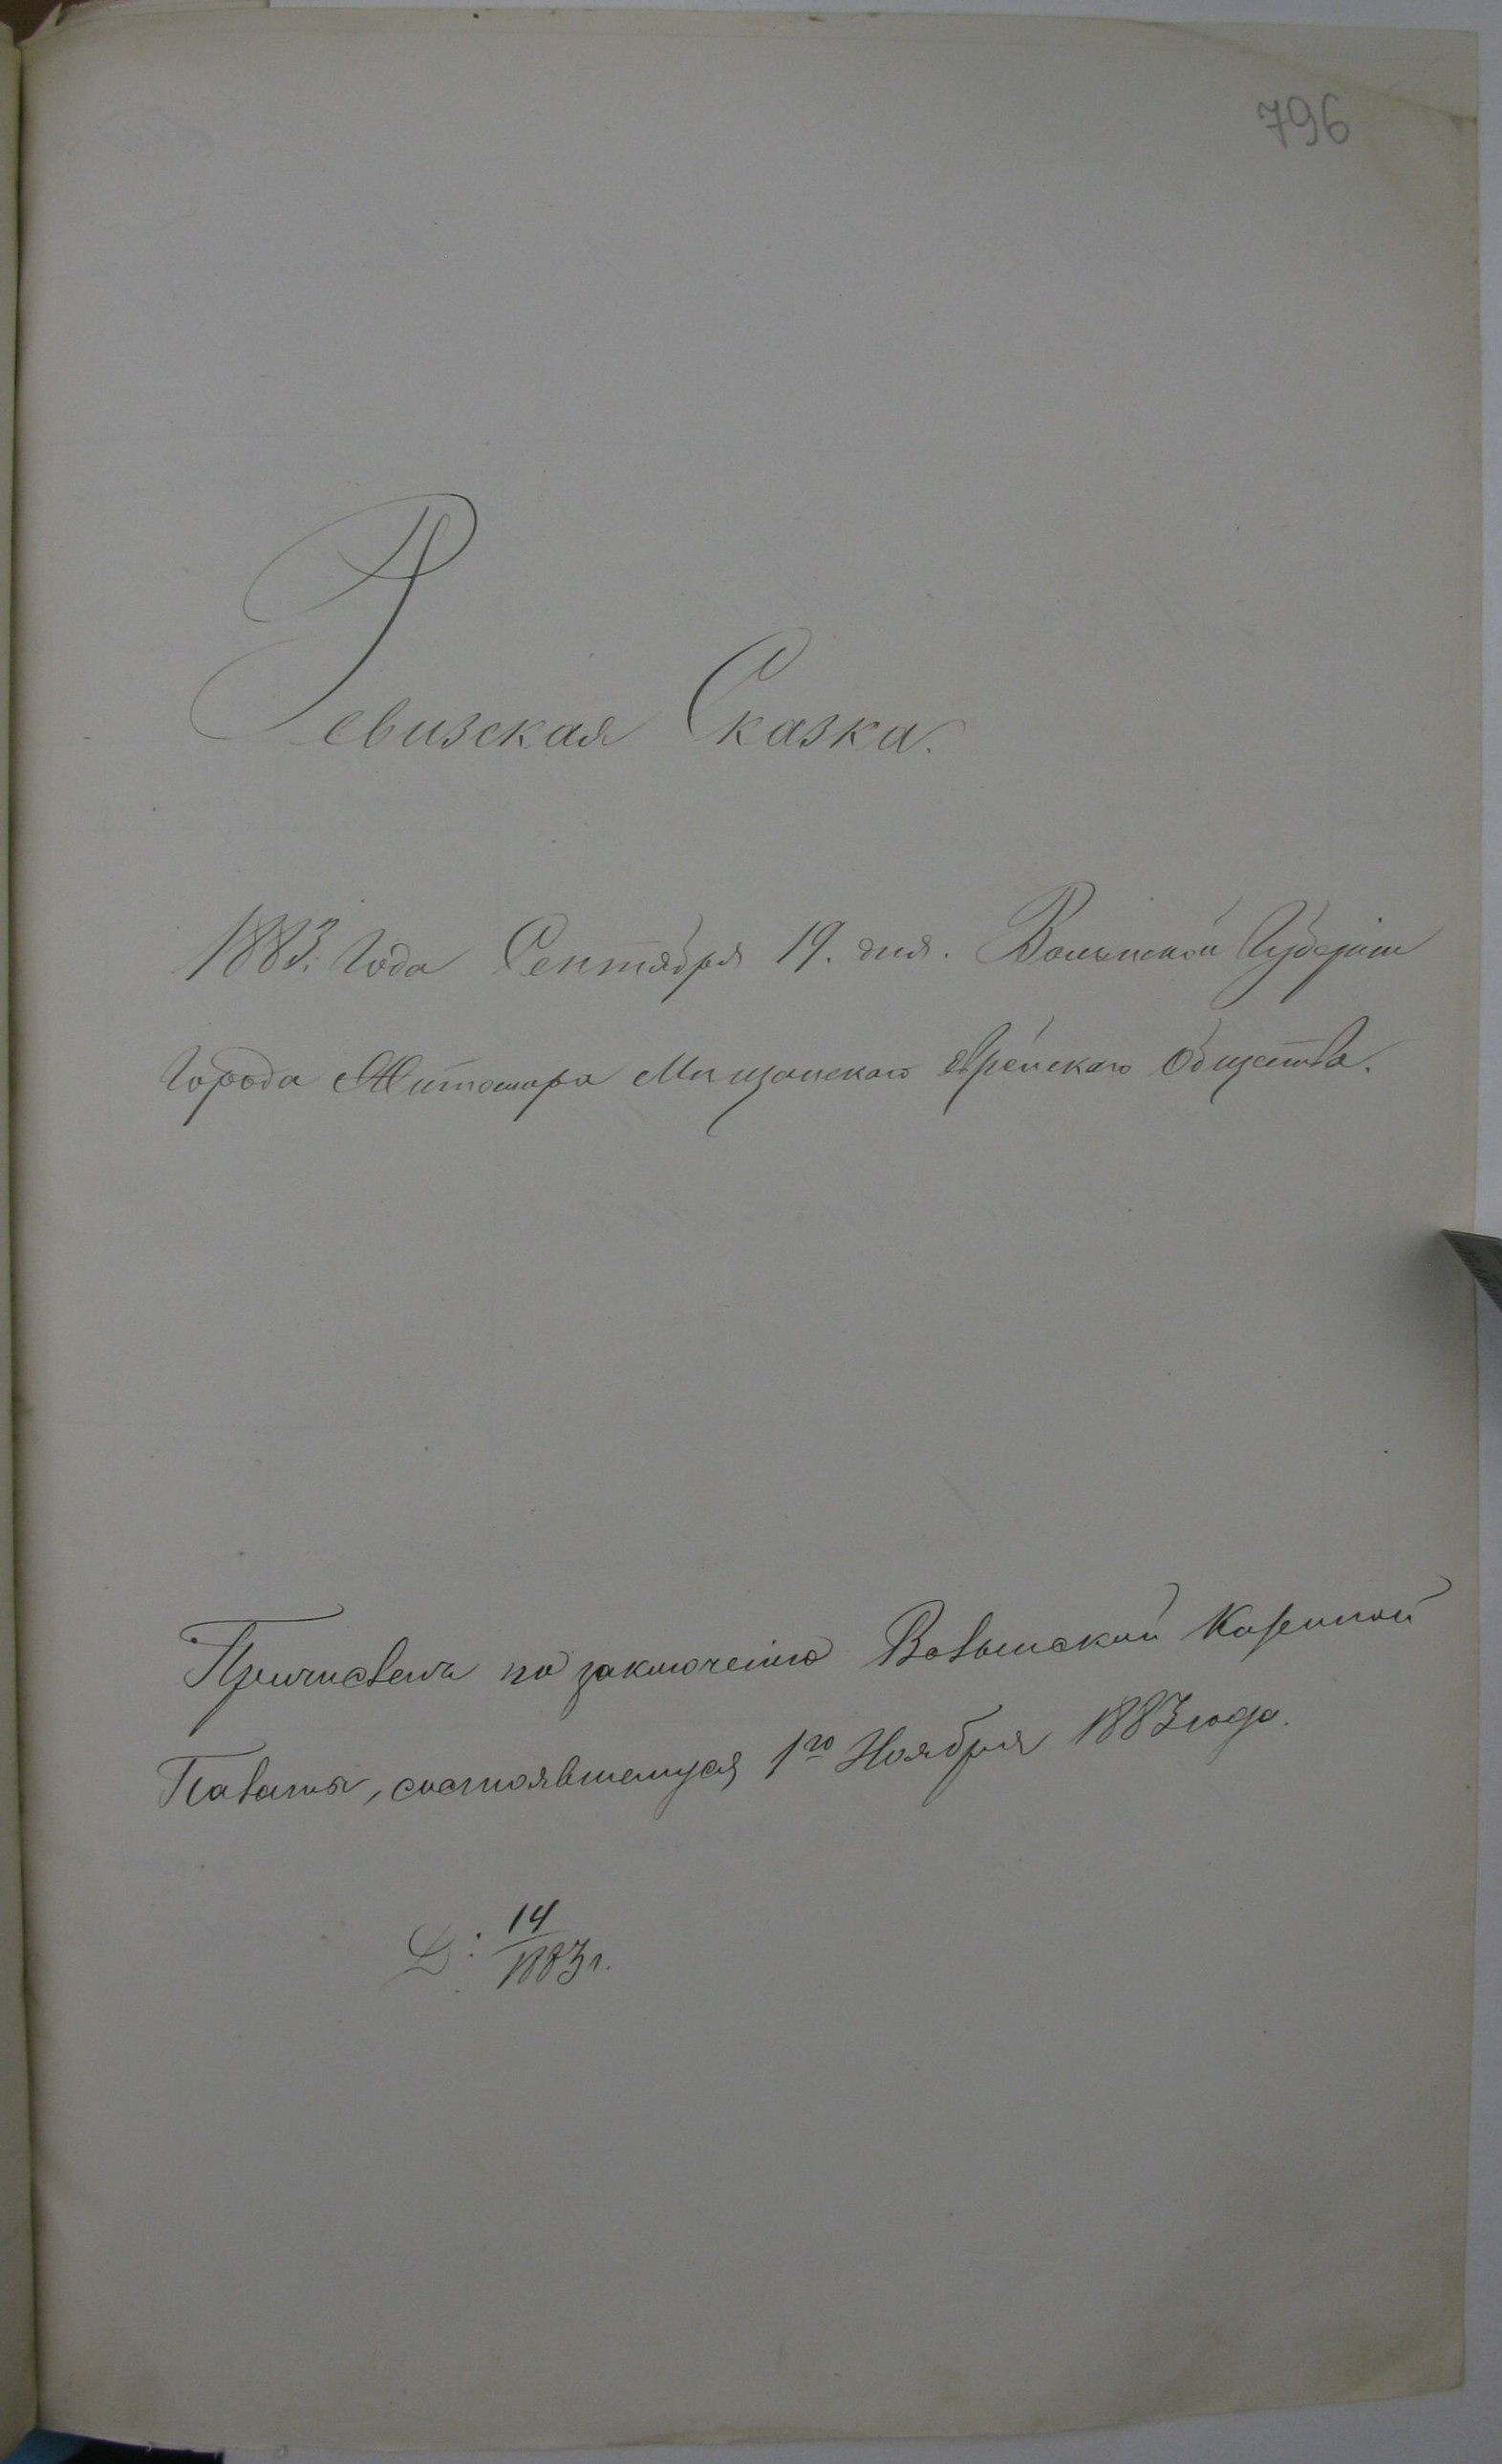 796
Ревизская Сказка.
1883. Года Сентября 19. дня. Волынской Губерніи
Города Житомира Мѣщанскаго еврейскаго Общества.
Причисленъ по заключенію Волынской Казенной
Палаты, состоявшемуся 1го Ноября 1883 года.
Д: 14/1883 г.